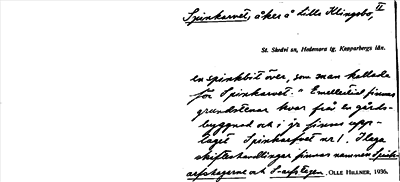 Spinkarvet, åker å Lilla Klingsbo, II
St. Skedvi sn, Hedemora tg, Kopparbergs län.
en spinkbit över, som man kallade
för Spinkarvet." Emellertid finnas
grundstenar kvar från en gårds-
byggnad och i jr finnes upp-
taget Spinkarfvet nr 1. I laga
skifteshandlingar finnas namnen Spink-
arfshagarne och S-arfstägen. OLLE HILLNER, 1936.